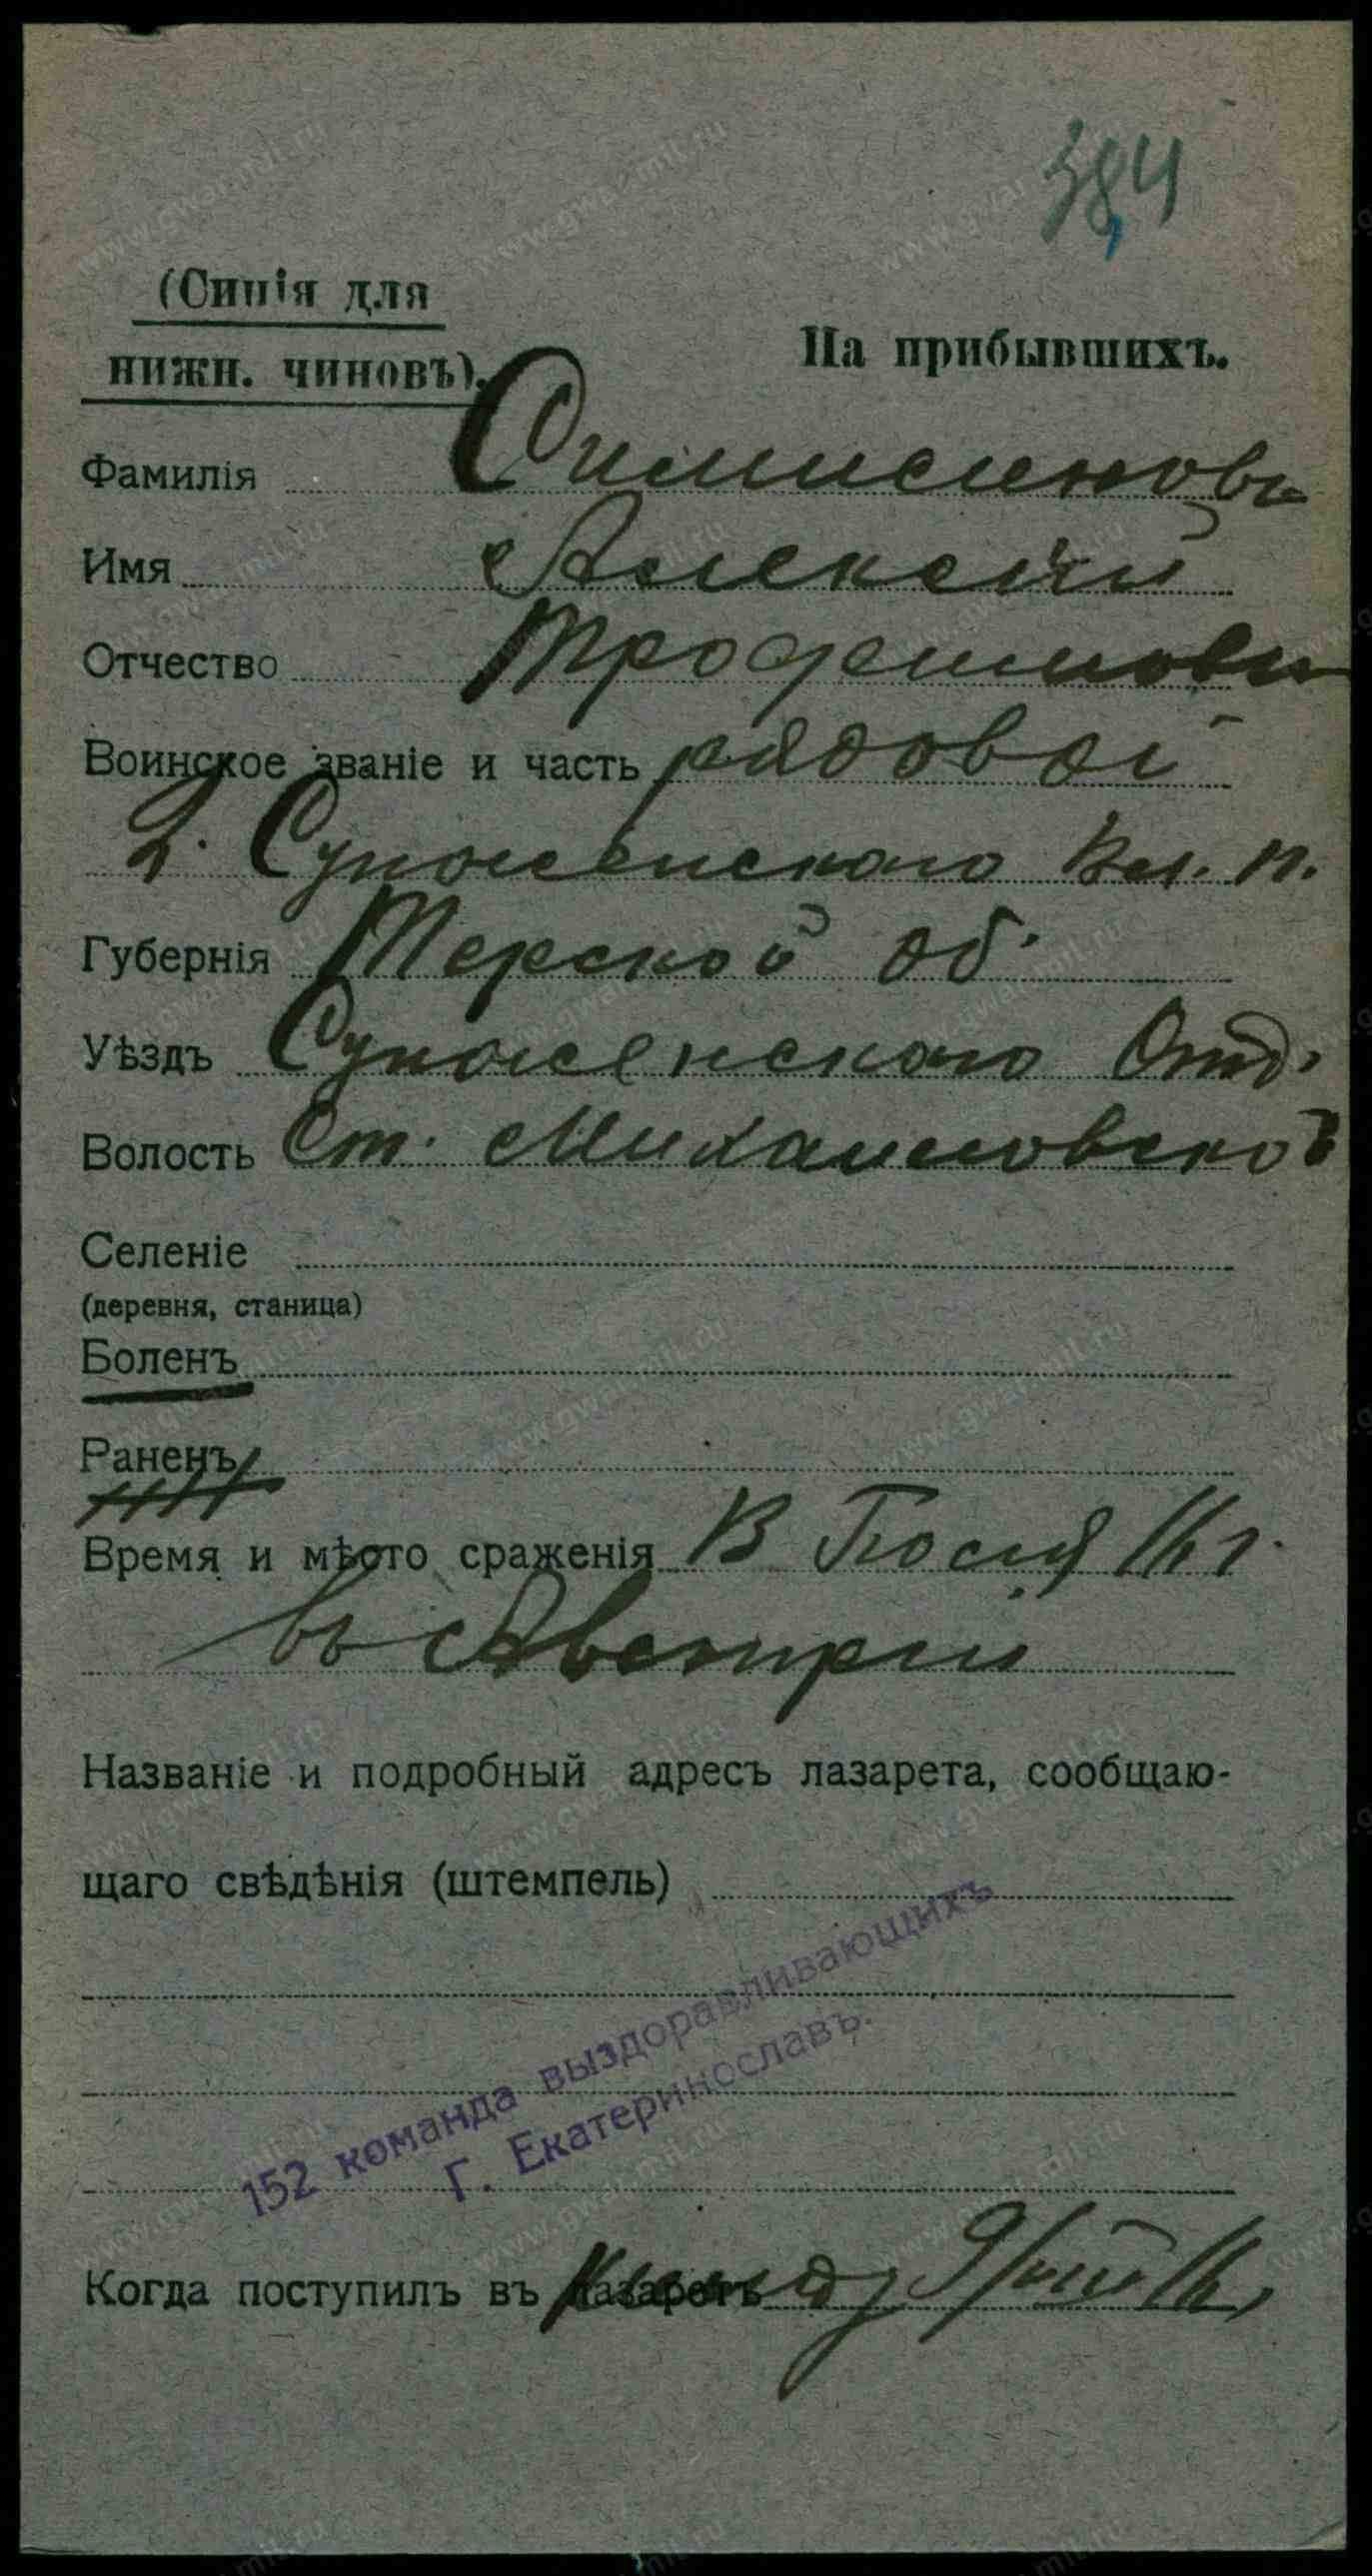 384
(Синія для
нижн. чиновъ).
На прибывшихъ.
Фамилія
Имя Алексѣй
Отчество Трофимовъ
Воинское званіе и часть рядовой
2. Сунженскаго Вл. п.
Губернія Терской об.
Уѣздъ Сунженскаго Отд.
Волость Ст. Михайловской
Селеніе
(деревня, станица)
Боленъ
Раненъ
Время и мѣсто сраженія В 16 г.
въ Австріи
Названіе и подробный адресъ лазарета, сообщаю-
щаго свѣдѣнія (штемпель)
152 команда выздоравливающихъ
Г. Екатеринославъ.
Когда поступилъ въ лазаретъ команду